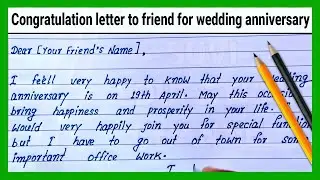 Congratulation letter to friend for wedding anniversary
Dear [Your Friend's Name],
I feell very happy to know that your wedding
anniversary is on 19th April. May this occasion
bring happiness and prosperity in your life. I
would very happily join you for special function
but I have to go out of town for some
important office work.